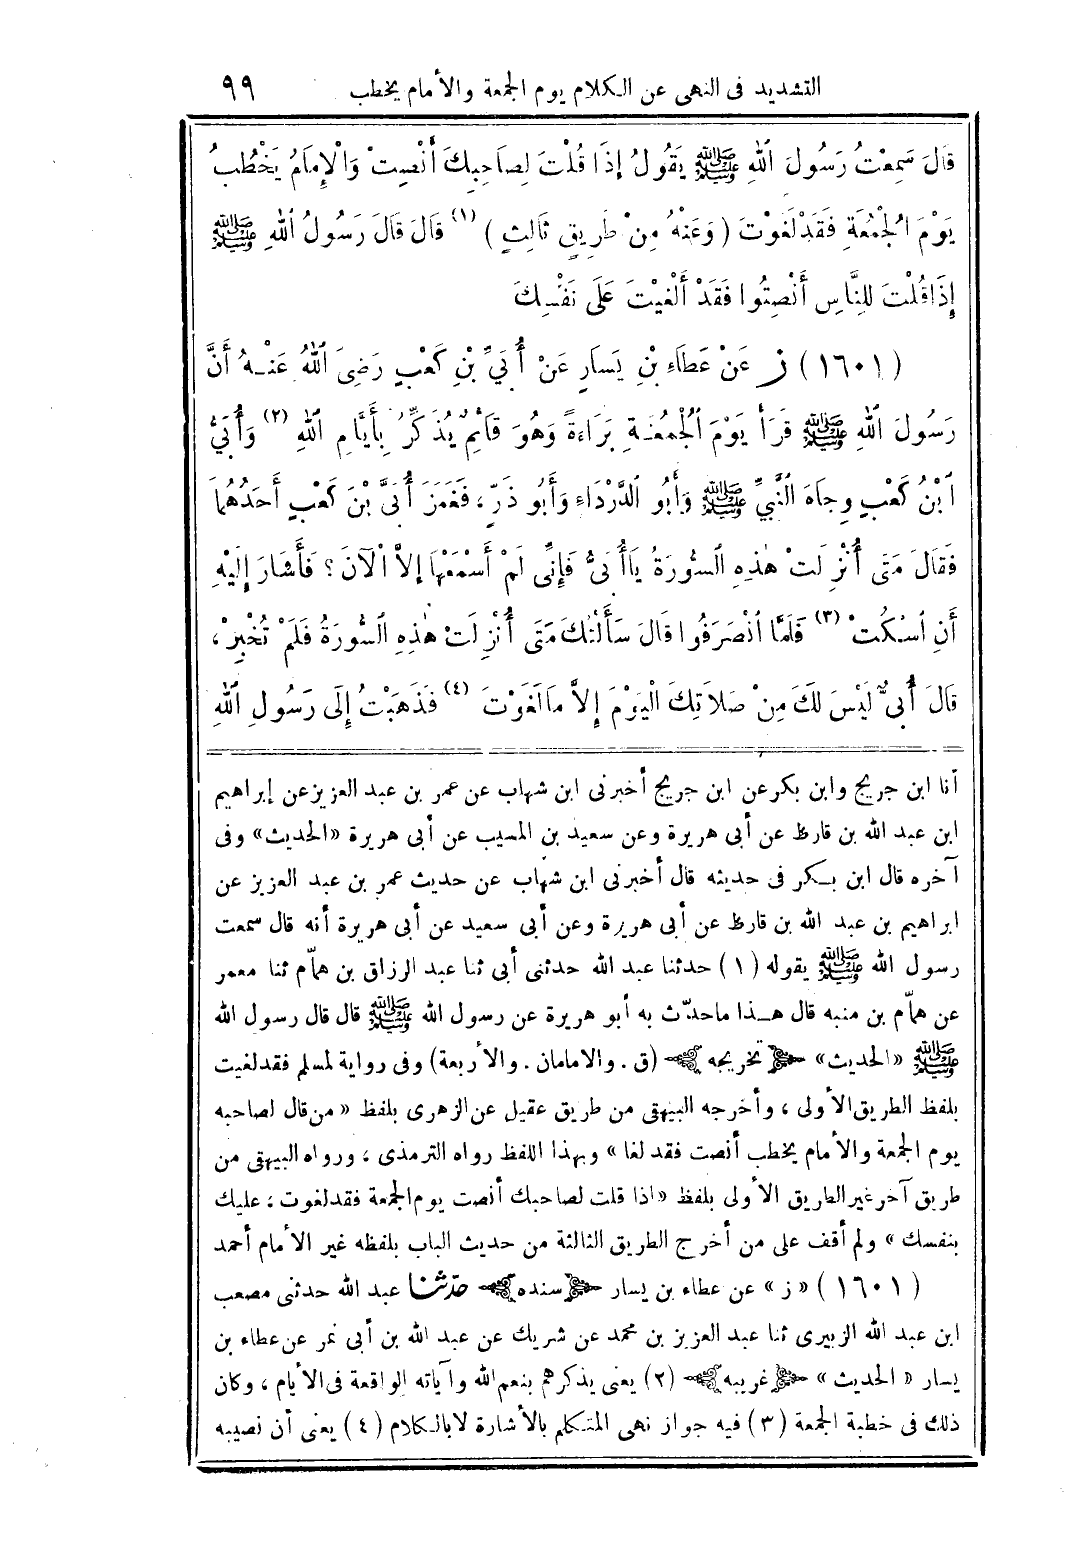 التشديد فى النهى عن الكلام يوم الجمعة والأمام يخطب ٩٩
قَالَ سَمِعْتُ رَسُولَ ٱللهِ ﷺ يَقُولُ إِذَا قُلْتَ لِصَاحِبِكَ أَنْصِتْ وَالْإِمَامُ يَخْطُبُ
يَوْمَ الْجُمُعَةِ فَقَدْ لَغَوْتَ (وَعَنْهُ مِنْ طَرِيقٍ ثَالِثٍ) (١) قَالَ قَالَ رَسُولُ ٱللهِ ﷺ
إِذَا قُلْتَ لِلنَّاسِ أَنْصِتُوا فَقَدْ أَلْغَيْتَ عَلَى نَفْسِكَ
(١٦٠١) ز عَنْ عَطَاءِ بْنِ يَسَارٍ عَنْ أُبَيِّ بْنِ كَعْبٍ رَضِىَ ٱللهُ عَنْهُ أَنَّ
رَسُولَ ٱللهِ ﷺ قَرَأَ يَوْمَ ٱلْجُمُعَةِ بَرَاءَةً وَهُوَ قَائِمٌ يُذَكِّرُ بِأَيَّامِ ٱللهِ (٢) وَأُبَيُّ
ٱبْنُ كَعْبٍ وِجَاهَ النَّبِيِّ ﷺ وَأَبُو الدَّرْدَاءِ وَأَبُو ذَرٍّ، فَغَمَزَ أُبَىَّ بْنَ كَعْبٍ أَحَدُهُمَا
فَقَالَ مَتَى أُنْزِلَتْ هٰذِهِ السُّورَةُ يَا أُبَىُّ فَإِنِّى لَمْ أَسْمَعْهَا إِلاَّ الْآنَ؟ فَأَشَارَ إِلَيْهِ
أَنِ ٱسْكُتْ (٣) فَلَمَّا ٱنْصَرَفُوا قَالَ سَأَلْتُكَ مَتَى أُنْزِلَتْ هٰذِهِ السُّورَةُ فَلَمْ تُخْبِرْ،
قَالَ أُبَىٌّ لَيْسَ لَكَ مِنْ صَلَاتِكَ الْيَوْمَ إِلاَّ مَا لَغَوْتَ (٤) فَذَهَبْتُ إِلَى رَسُولِ ٱللهِ
أنا ابن جريج وابن بكر عن ابن جريج أخبرنى ابن شهاب عن عمر بن عبد العزيز عن إبراهيم
ابن عبد الله بن قارظ عن أبى هريرة وعن سعيد بن المسيب عن أبى هريرة «الحديث» وفى
آخره قال ابن بكر فى حديثه قال أخبرنى ابن شهاب عن حديث عمر بن عبد العزيز عن
ابراهيم بن عبد الله بن قارظ عن أبى هريرة وعن أبى سعيد عن أبى هريرة أنه قال سمعت
رسول الله ﷺ يقوله (١) حدثنا عبد الله حدثنى أبى ثنا عبد الرزاق بن همّام ثنا معمر
عن همّام بن منبه قال هذا ما حدّث به أبو هريرة عن رسول الله ﷺ قال قال رسول الله
ﷺ «الحديث» تخريجه (ق. والامامان. والأربعة) وفى رواية لمسلم فقد لغيت
بلفظ الطريق الأولى، وأخرجه البيهقى من طريق عقيل عن الزهرى بلفظ «من قال لصاحبه
يوم الجمعة والأمام يخطب أنصت فقد لغا» وبهذا اللفظ رواه الترمذى، ورواه البيهقى من
طريق آخر غير الطريق الأولى بلفظ «اذا قلت لصاحبك أنصت يوم الجمعة فقد لغوت، عليك
بنفسك» ولم أقف على من أخرج الطريق الثالثة من حديث الباب بلفظه غير الأمام أحمد
(١٦٠١) «ز» عن عطاء بن يسار سنده حدّثنا عبد الله حدثنى مصعب
ابن عبد الله الزبيرى ثنا عبد العزيز بن محمد عن شريك عن عبد الله بن أبى نمر عن عطاء بن
يسار «الحديث» غريبه (٢) يعنى يذكرهم بنعم الله وآياته الواقعة فى الأيام، وكان
ذلك فى خطبة الجمعة (٣) فيه جواز نهى المتكلم بالأشارة لا بالكلام (٤) يعنى أن نصيبه